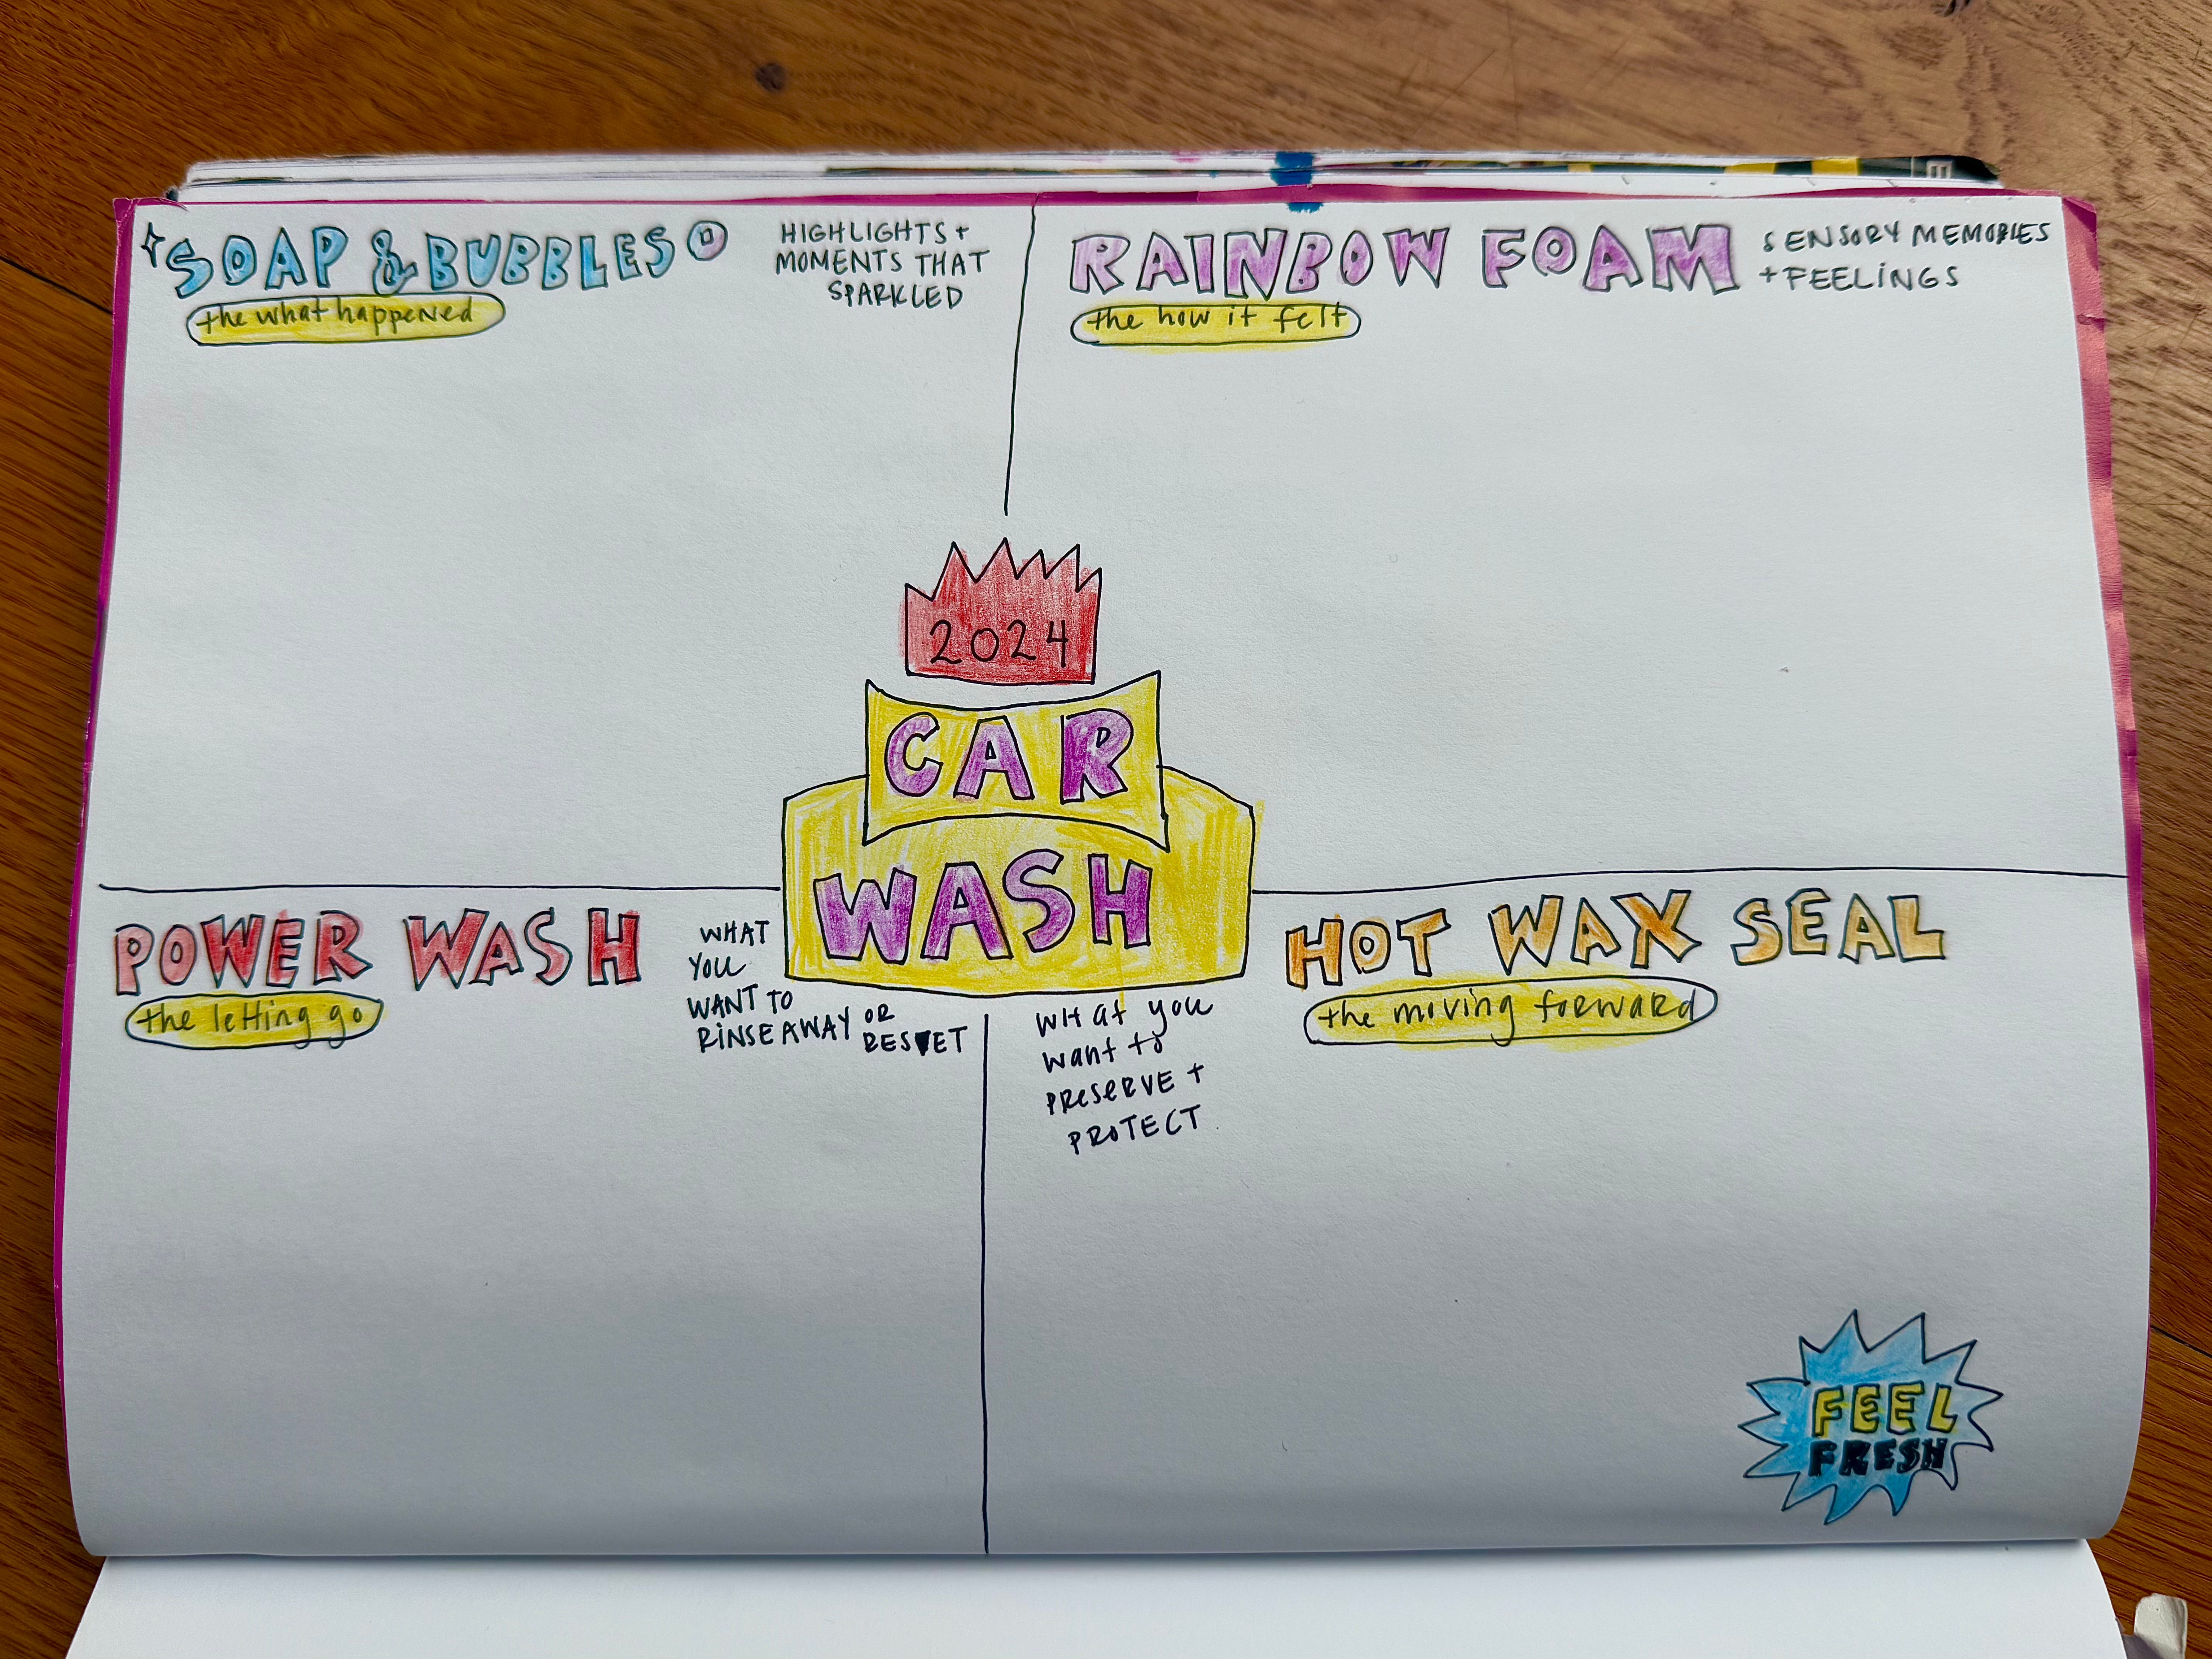 SOAP & BUBBLES
the what happened
HIGHLIGHTS +
MOMENTS THAT
SPARKLED
RAINBOW FOAM
the how it felt
SENSORY MEMORIES
+ FEELINGS
2024
CAR
WASH
POWER WASH
the letting go
WHAT
YOU
WANT TO
RINSE AWAY OR
RESET
HOT WAX SEAL
the moving forward
WHAT you
want to
PRESERVE +
PROTECT
FEEL
FRESH